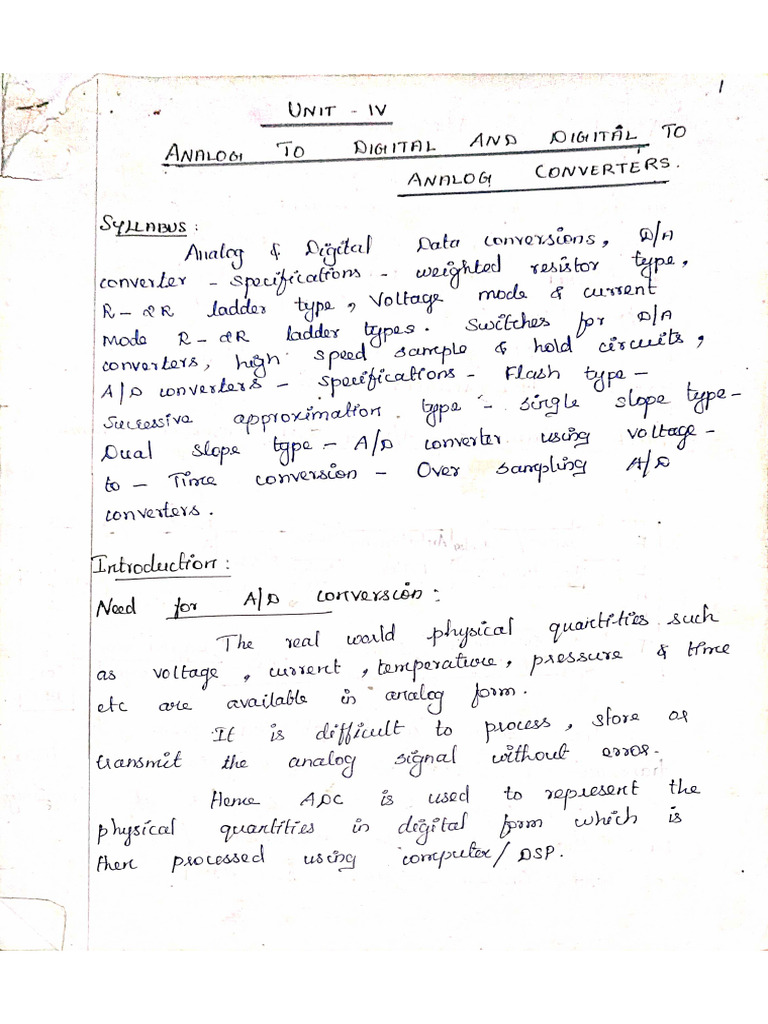 1
UNIT - IV
ANALOG TO DIGITAL AND DIGITAL TO
ANALOG CONVERTERS.
SYLLABUS :
Analog & Digital Data conversions, D/A
converter - specifications - weighted resistor type,
R-2R ladder type, Voltage mode & current
Mode R-2R ladder types. Switches for D/A
converters, high speed sample & hold circuits,
A/D converters - specifications - Flash type -
Successive approximation type - single slope type -
Dual slope type - A/D converter using voltage -
to - Time conversion - Over sampling A/D
converters.
Introduction :
Need for A/D conversion :
The real world physical quantities such
as voltage, current, temperature, pressure & time
etc are available in analog form.
It is difficult to process, store or
transmit the analog signal without error.
Hence ADC is used to represent the
physical quantities in digital form which is
then processed using computer/DSP.